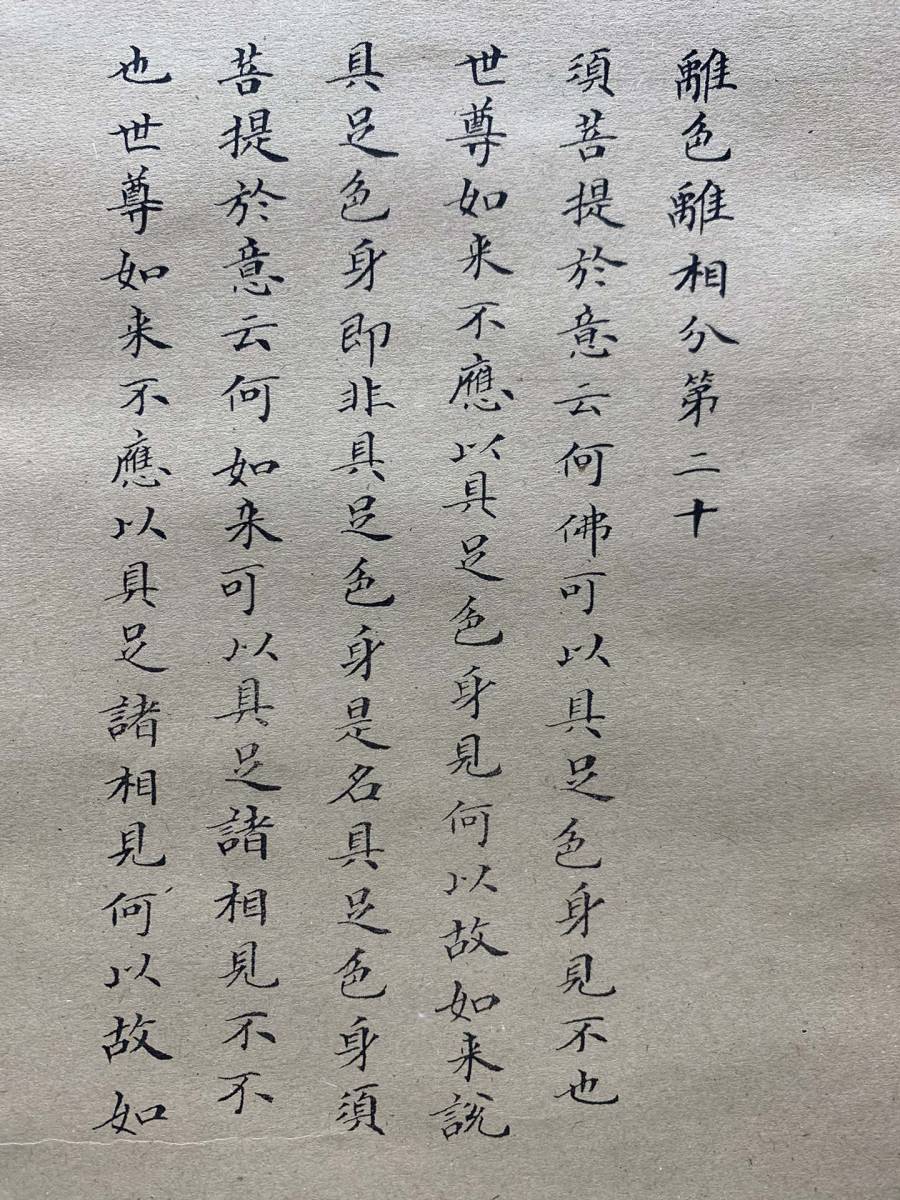 離色離相分第二十
須菩提於意云何佛可以具足色身見不也
世尊如来不應以具足色身見何以故如来説
具足色身即非具足色身是名具足色身須
菩提於意云何如来可以具足諸相見不不
也世尊如来不應以具足諸相見何以故如